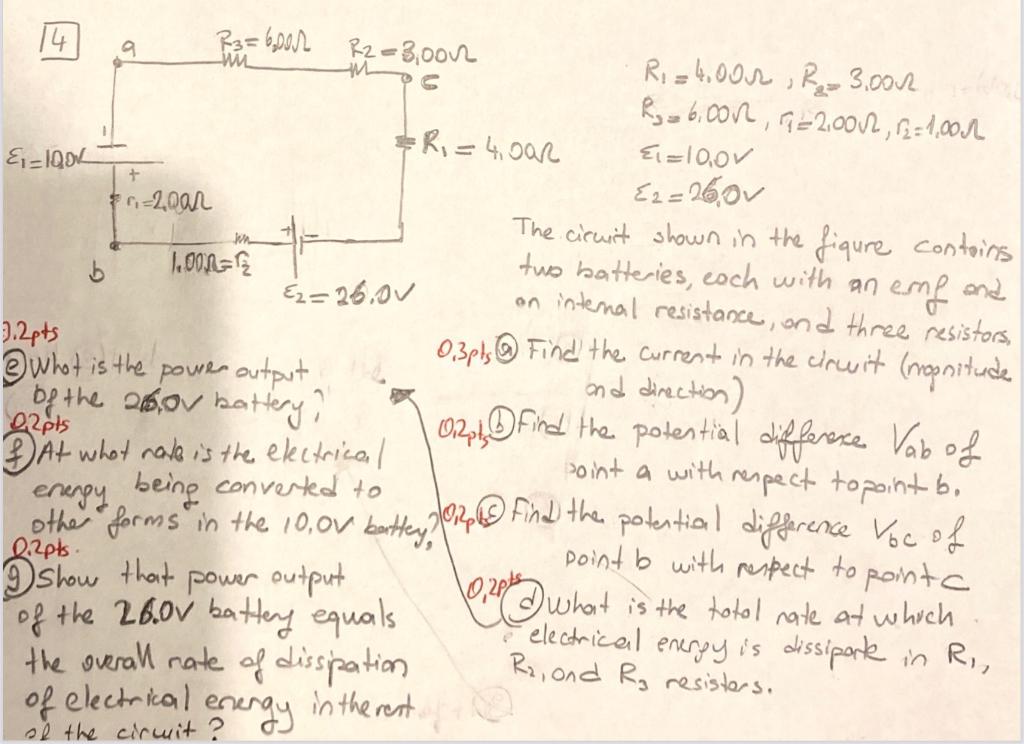 4
a
R3 = 6,00Ω
R2 = 3,00Ω
c
R1 = 4,00Ω
ε1 = 10,0V
+
r1 = 2,00Ω
b
1.00Ω = r2
+ -
ε2 = 26.0V
R1 = 4.00Ω , R2 = 3.00Ω
R3 = 6.00Ω , r1 = 2.00Ω , r2 = 1.00Ω
ε1 = 10,0V
ε2 = 26,0V
The circuit shown in the figure contains
two batteries, each with an emf and
an internal resistance, and three resistors.
0,3pts a Find the current in the circuit (magnitude
and direction)
0,2pts b Find the potential difference Vab of
point a with respect to point b.
0,2pts c Find the potential difference Vbc of
point b with respect to point c
0,2pts d What is the total rate at which
electrical energy is dissipate in R1,
R2, and R3 resistors.
0.2pts
e What is the power output
of the 26,0V battery?
0.2pts
f At what rate is the electrical
energy being converted to
other forms in the 10,0V battery?
0.2pts.
g Show that power output
of the 26.0V battery equals
the overall rate of dissipation
of electrical energy in the rest
of the circuit ?